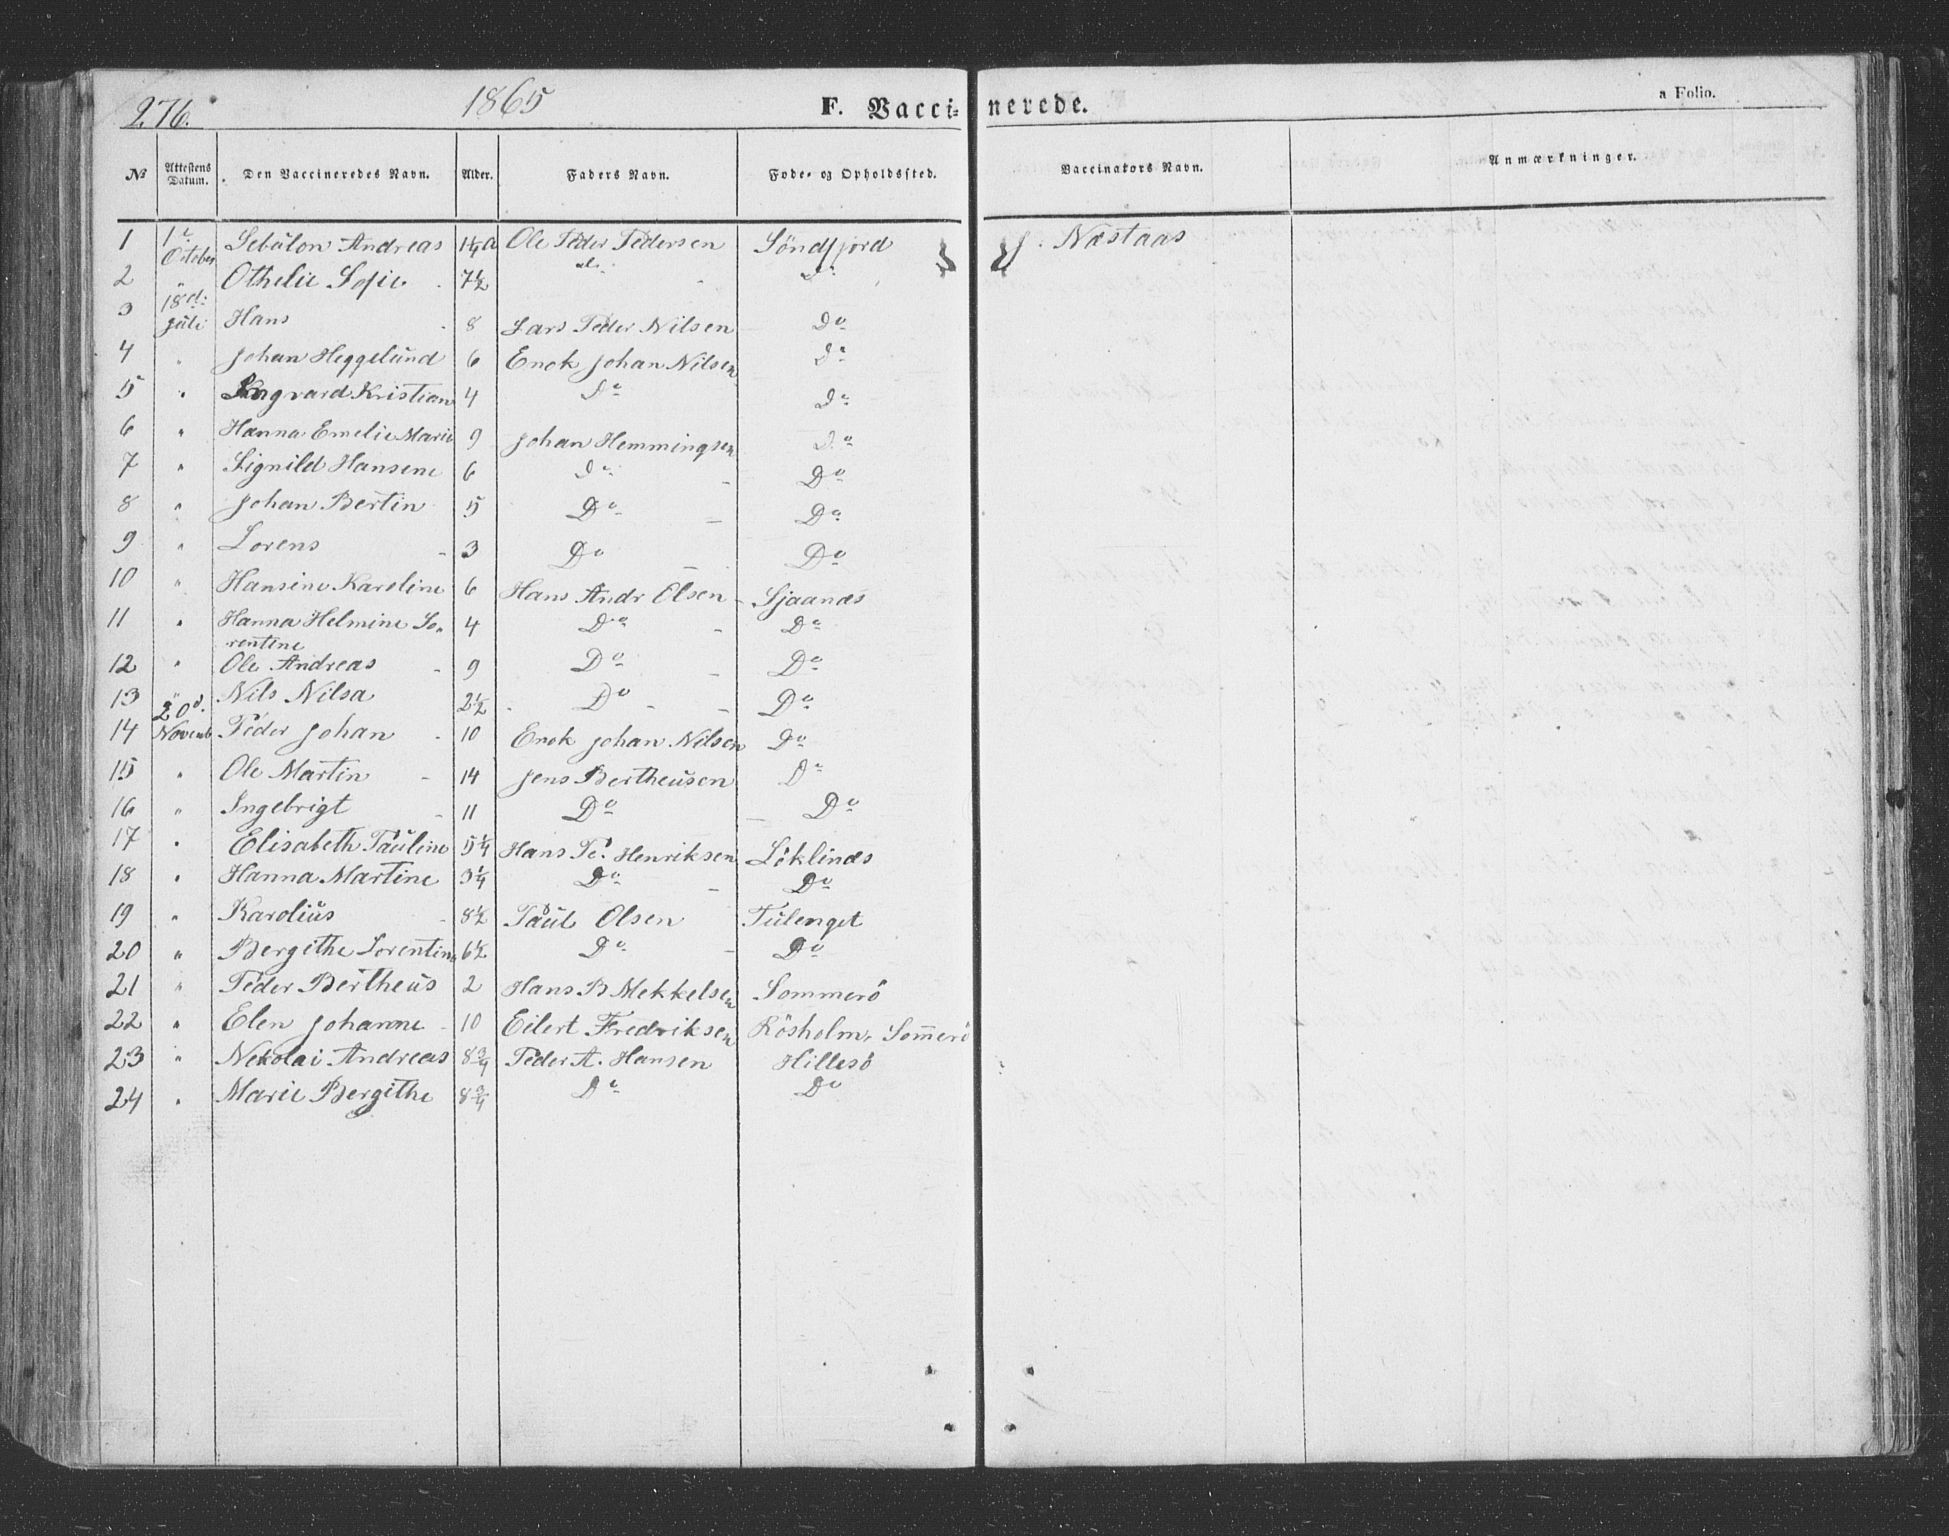 276. 1865 F. Vaccinerede. a Folio.
№ Attestens Datum. Den Vaccineredes Navn. Alder. Faders Navn. Føde- og Opholdssted. Vaccinators Navn. Anmærkninger.
1 1e October Sebulon Andreas 1¼ a Ole Peder Pedersen Söndfjord J. Næstaas
2 " Othelie Sofie 7½ do Do
3 18d: Juli Hans 8 Lars Peder Nilsen Do
4 " Johan Heggelund 6 Enok Johan Nilsen Do
5 " Ingvard Kristian 4 Do Do
6 " Hanna Emelie Marie 9 Johan Hemmingsen Do
7 " Signild Hansene 6 Do - Do
8 " Johan Bertin 5 Do - Do
9 " Lorens - 3 Do - Do
10 " Hansine Karoline 6 Hans Andr Olsen - Sjaanæs
11 " Hanna Helmine Lo- 4 Do - Do
rentine
12 " Ole Andreas - 9 Do - Do
13 " Nils Nilsa 2½ Do - Do
14 20d. Novemb Peder Johan - 10 Enok Johan Nilsen Do
15 " Ole Martin - 14 Jens Bertheusen Do
16 " Ingebrigt - 11 Do - Do
17 " Elisabeth Pauline 5¼ Hans Pe. Henriksen Löklinæs
18 " Hanna Martine 3¼ Do - Do
19 " Karolius - 8½ Paul Olsen Tulenget
20 " Bergithe Lorentine 6½ Do - Do
21 " Peder Bertheus 2 Hans B Mekkelsen Sommerö
22 " Elen Johanne - 10 Eilert Fredriksen Rösholm, Somerö
23 " Nekolai Andreas 8¾ Peder A. Hansen Hillesö
24 " Marie Bergithe 8¾ Do Do